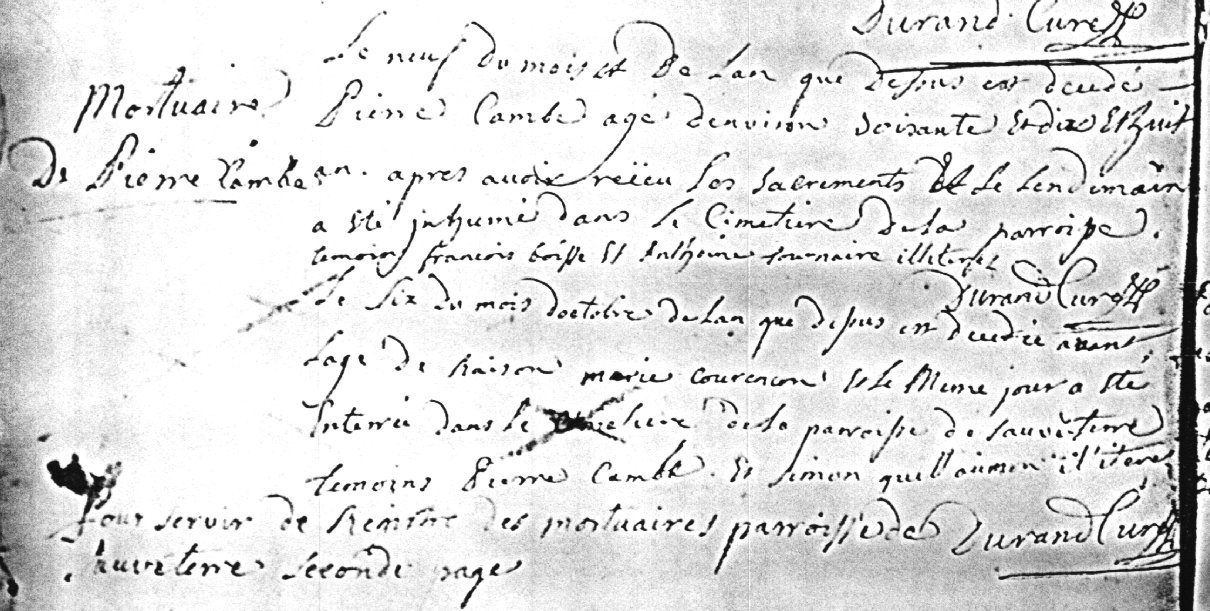 Durand Curé
Le neuf du mois et De Lan que dessus est decedé
Mortuaire
De Pierre Cambe
Pierre Cambe agé denviron soixante Et dix Et huit
an. apres avoir reiceu Les sacrements Et Le Lendemain
a eté inhumé dans Le Cimetiere De la parroisse.
temoins francois boisse Et Anthoine tournaire illiteres
Durand Curé
Le Six du mois doctobre de Lan que dessus est decedée avant
Lage De Raison marie courencon Et Le Meme jour a ete
Enterrée dans Le Cimetiere de la parroisse de Sauveterre
temoins Pierre Cambe. Et Simon guillaumon illiteres
Durand Curé
Pour servir de Remitre des mortuaires parroisse de
Sauveterre Seconde page